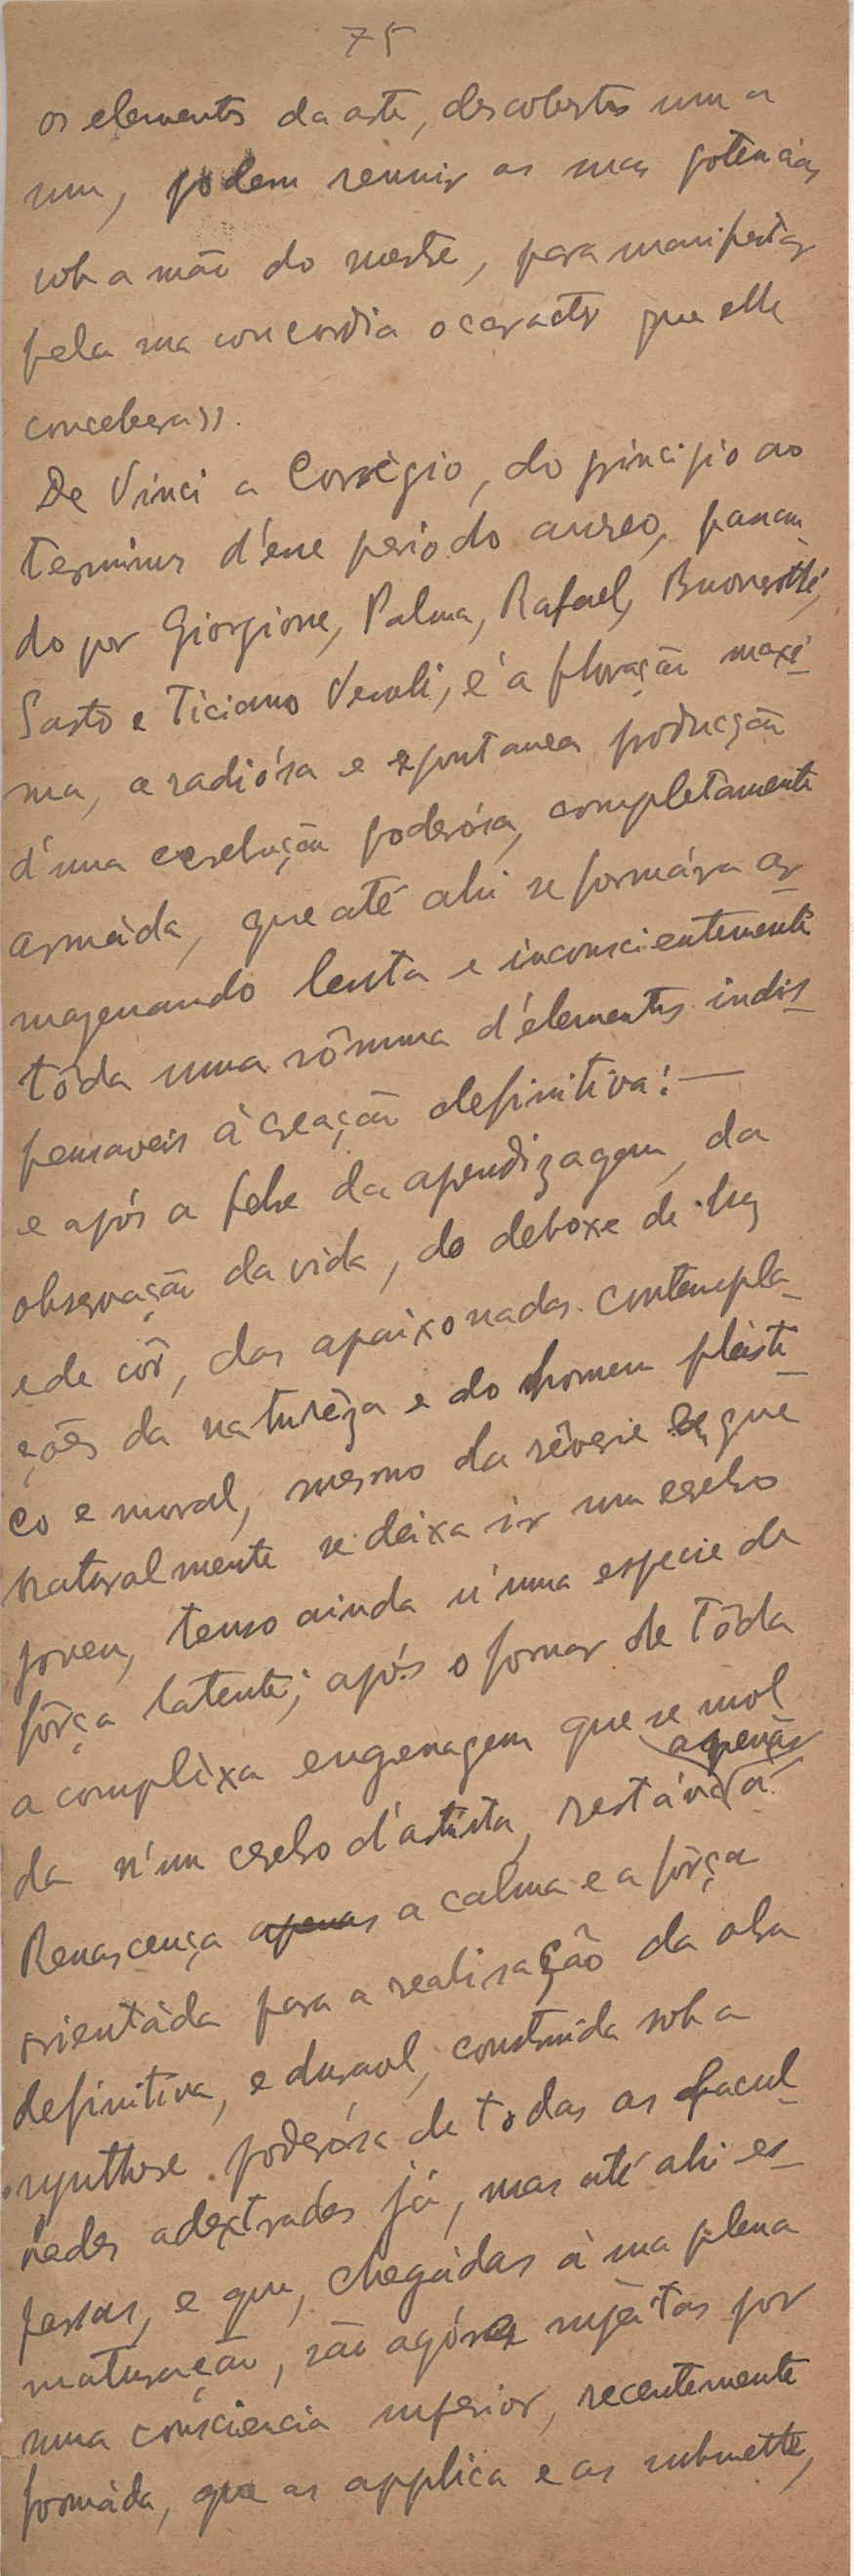 75
os elementos da arte, descobertos um a
um, podem reunir as suas potencias
sob a mão do mestre, para manifestar
pela sua concordia o caracter que elle
concebera».
De Vinci a Corrègio, do principio ao
terminus d'esse periodo aureo, passan_
do por Giorgione, Palma, Rafael, Buonarotti,
Sarto e Ticiano Vecelli, é a floração maxi_
ma, a radiósa e espontanea producção
d'uma evolução poderósa, completamente
armáda, que até ahi se formára ar_
mazenando lenta e inconscientemente
tôda uma sômma d'elementos indis_
pensaveis à creação definitiva: —
e após a febre da aprendizagem, da
observação da vida, do deboxe de luz
e de côr, das apaixonadas contempla_
ções da naturêza e do homem plásti_
co e moral, mesmo da rêverie em que
naturalmente se deixa ir um cerebro
joven, tenso ainda n'uma especie de
fôrça latente; após o formar de tôda
a complèxa engrenagem que se mol
apenas
da n'um cerebro d'artista, restáva á
Renascença apenas a calma e a fôrça
orientáda para a realisação da obra
definitiva, e duravel, construida sob a
synthese poderósa de todas as facul_
dades adextradas já, mas até ahi es_
parsas, e que, chegádas á sua plena
maturação, são agóra sujeitas por
uma consciencia superior, recentemente
formáda, que as applica e as submette,